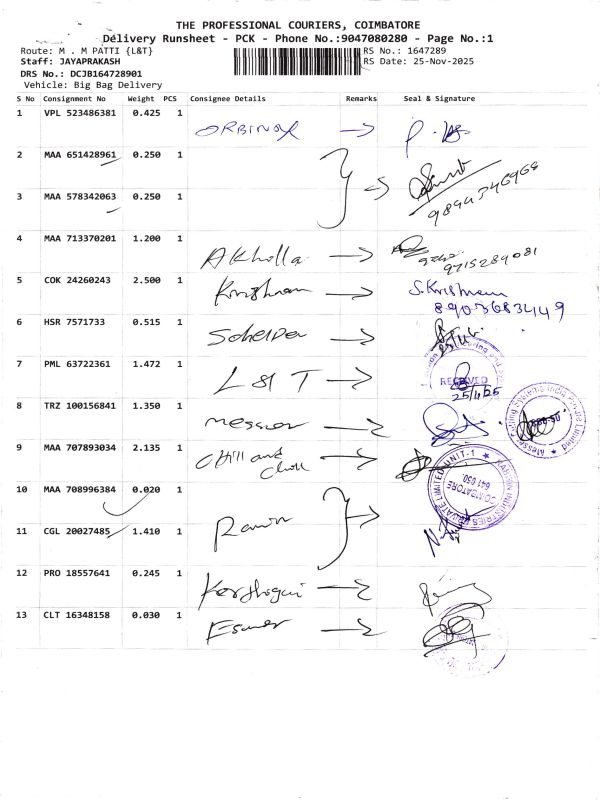 THE PROFESSIONAL COURIERS, COIMBATORE
Delivery Runsheet - PCK - Phone No.:9047080280 - Page No.:1
Route: M . M PATTI {L&T}
RS No.: 1647289
Staff: JAYAPRAKASH
RS Date: 25-Nov-2025
DRS No.: DCJB164728901
Vehicle: Big Bag Delivery
S No Consignment No Weight PCS Consignee Details Remarks Seal & Signature
1 VPL 523486381 0.425 1
2 MAA 651428961 0.250 1
3 MAA 578342063 0.250 1
9894346968
4 MAA 713370201 1.200 1 AKholla
9715289081
5 COK 24260243 2.500 1 Krishnan S.Krishnan
8903683449
6 HSR 7571733 0.515 1
7 PML 63722361 1.472 1 L&T RECEIVED
25/11/25
8 TRZ 100156841 1.350 1 messer
9 MAA 707893034 2.135 1 Chill and
UNIT-1
COIMBATORE
641 050.
10 MAA 708996384 0.020 1
11 CGL 20027485 1.410 1
12 PRO 18557641 0.245 1
13 CLT 16348158 0.030 1